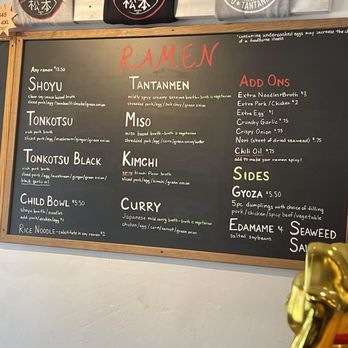 松本
TANTAN
*consuming undercooked eggs may increase the
of a foodborne illness
RAMEN
Any ramen $13.50
SHOYU
clear soy sauce based broth
sliced pork/egg/bamboo/green onion
TONKOTSU
rich pork broth
sliced pork/egg/mushroom/ginger/green onion
TONKOTSU BLACK
rich pork broth
sliced pork/egg/mushroom/ginger/green onion/
black garlic oil
CHILD BOWL $5.50
shoyu broth/noodles
add pork/chicken/egg $1
RICE NOODLE-substitute in any ramen $2
TANTANMEN
mildly spicy creamy sesame broth-broth is vegetarian
shredded pork/egg/bok choy/green onion
MISO
miso based broth-broth is vegetarian
shredded pork/egg/corn/green onion/butter
KIMCHI
spicy kimchi flavor broth
sliced pork/egg/kimchi/green onion
CURRY
Japanese mild curry broth-broth is vegetarian
chicken/egg/corn/carrot/green onion
ADD ONS
Extra Noodles+Broth $3
Extra Pork/Chicken $2
Extra Egg $1
Crunchy Garlic $.75
Crispy Onion $.75
Nori (sheet of dried seaweed) $.75
Chili Oil $.75
add to make your ramen spicy!
SIDES
GYOZA $5.50
5pc dumplings with choice of filling
pork/chicken/spicy beef/vegetable
EDAMAME $4
salted soybeans
SEAWEED
SA